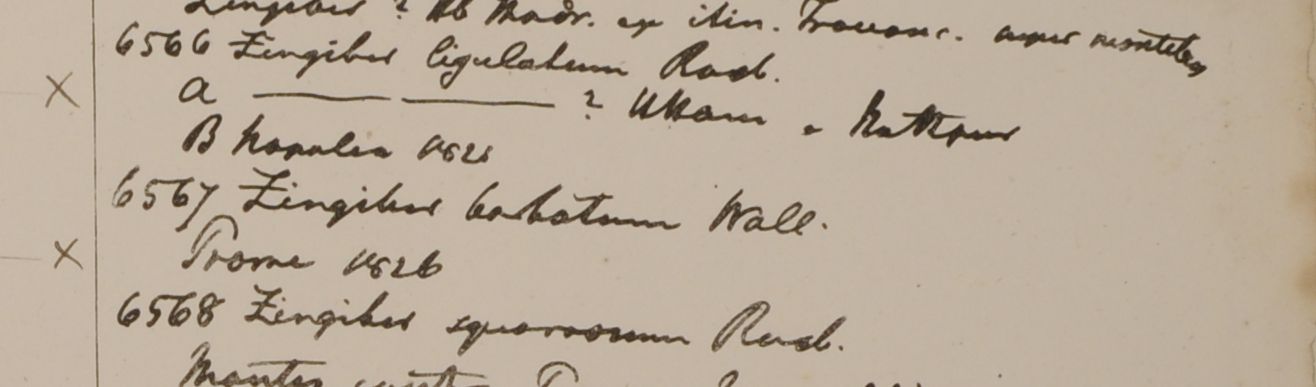 Zingiber ? Hb Madr. ex itin. Travanc. super montibus
6566 Zingiber ligulatum Roxb.
a — — ? Kttpur
B Napalia 1821
6567 Zingiber barbatum Wall.
Prome 1826
6568 Zingiber squarrosum Roxb.
Montes